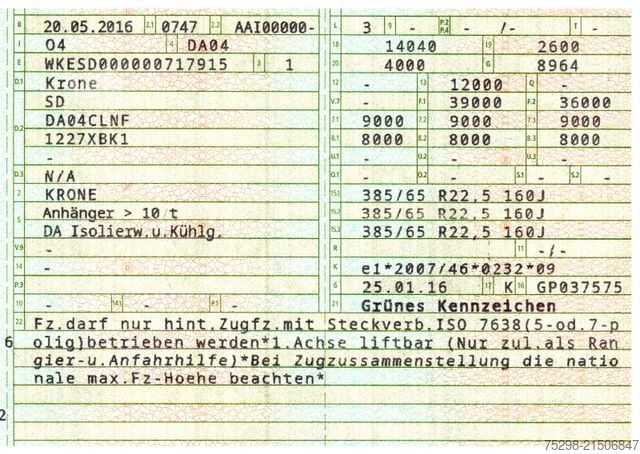 B 20.05.2016 2.1 0747 2.2 AAI00000-
J O4 4 DA04
E WKESD000000717915 3 1
D.1 Krone
SD
D.2 DA04CLNF
1227XBK1
-
D.3 N/A
2 KRONE
5 Anhänger > 10 t
DA Isolierw.u.Kühlg.
V.9 -
14 -
P.3
10 - 14.1 - P.1 -
L 3 9 - P.2 P.4 - /- T -
18 14040 19 2600
20 4000 G 8964
12 - 13 12000 Q -
V.7 - F.1 39000 F.2 36000
7.1 9000 7.2 9000 7.3 9000
8.1 8000 8.2 8000 8.3 8000
U.1 - U.2 - U.3 -
O.1 - O.2 - S.1 - S.2 -
15.1 385/65 R22,5 160J
15.2 385/65 R22,5 160J
15.3 385/65 R22,5 160J
R 11 -/-
K e1*2007/46*0232*09
6 25.01.16 17 K 16 GP037575
21 Grünes Kennzeichen
22 Fz.darf nur hint.Zugfz.mit Steckverb.ISO 7638(5-od.7-p
olig)betrieben werden*1.Achse liftbar (Nur zul.als Ran
gier-u.Anfahrhilfe)*Bei Zugzussamenstellung die natio
nale max.Fz-Hoehe beachten*
6
2
75298-21506847